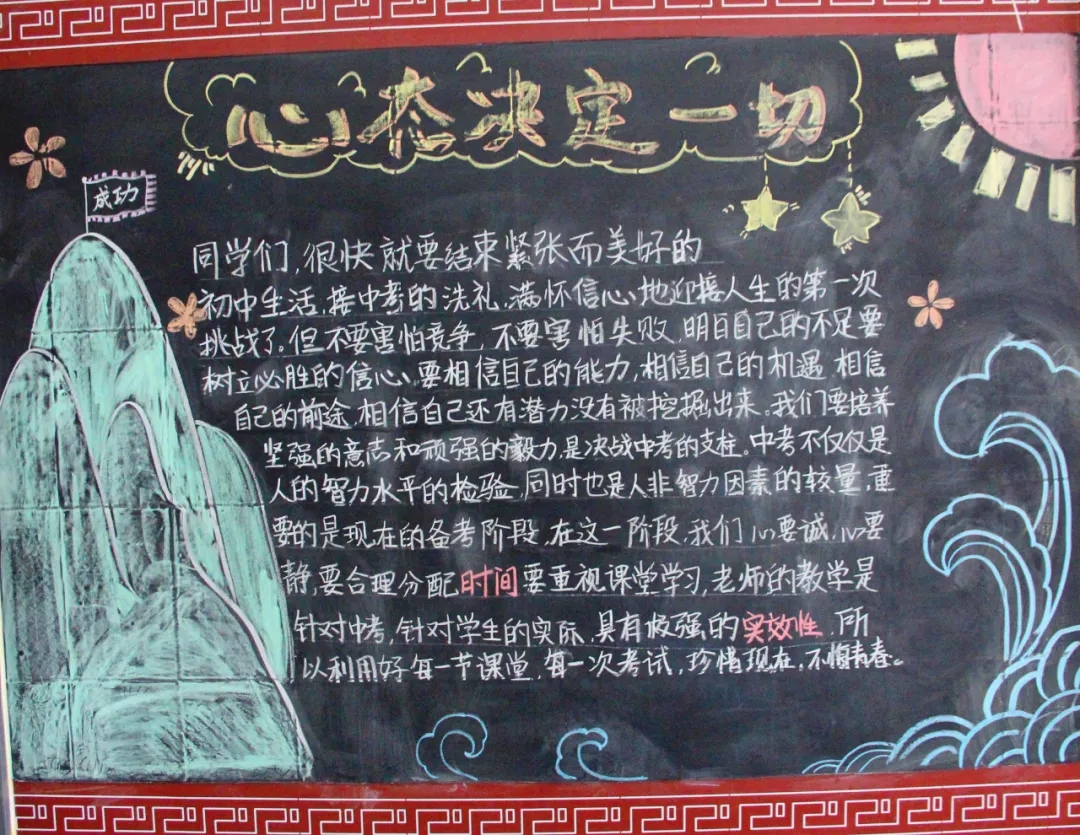 心态决定一切
成功
同学们，很快就要结束紧张而美好的
初中生活，接中考的洗礼，满怀信心地迎接人生的第一次
挑战了。但不要害怕竞争，不要害怕失败，明白自己的不足要
树立必胜的信心，要相信自己的能力，相信自己的机遇，相信
自己的前途，相信自己还有潜力没有被挖掘出来。我们要培养
坚强的意志和顽强的毅力，是决战中考的支柱。中考不仅仅是
人的智力水平的检验，同时也是人非智力因素的较量，重
要的是现在的备考阶段，在这一阶段，我们心要诚，心要
静，要合理分配时间要重视课堂学习，老师的教学是
针对中考，针对学生的实际，具有极强的实效性，所
以利用好每一节课堂，每一次考试，珍惜现在，不悔青春。